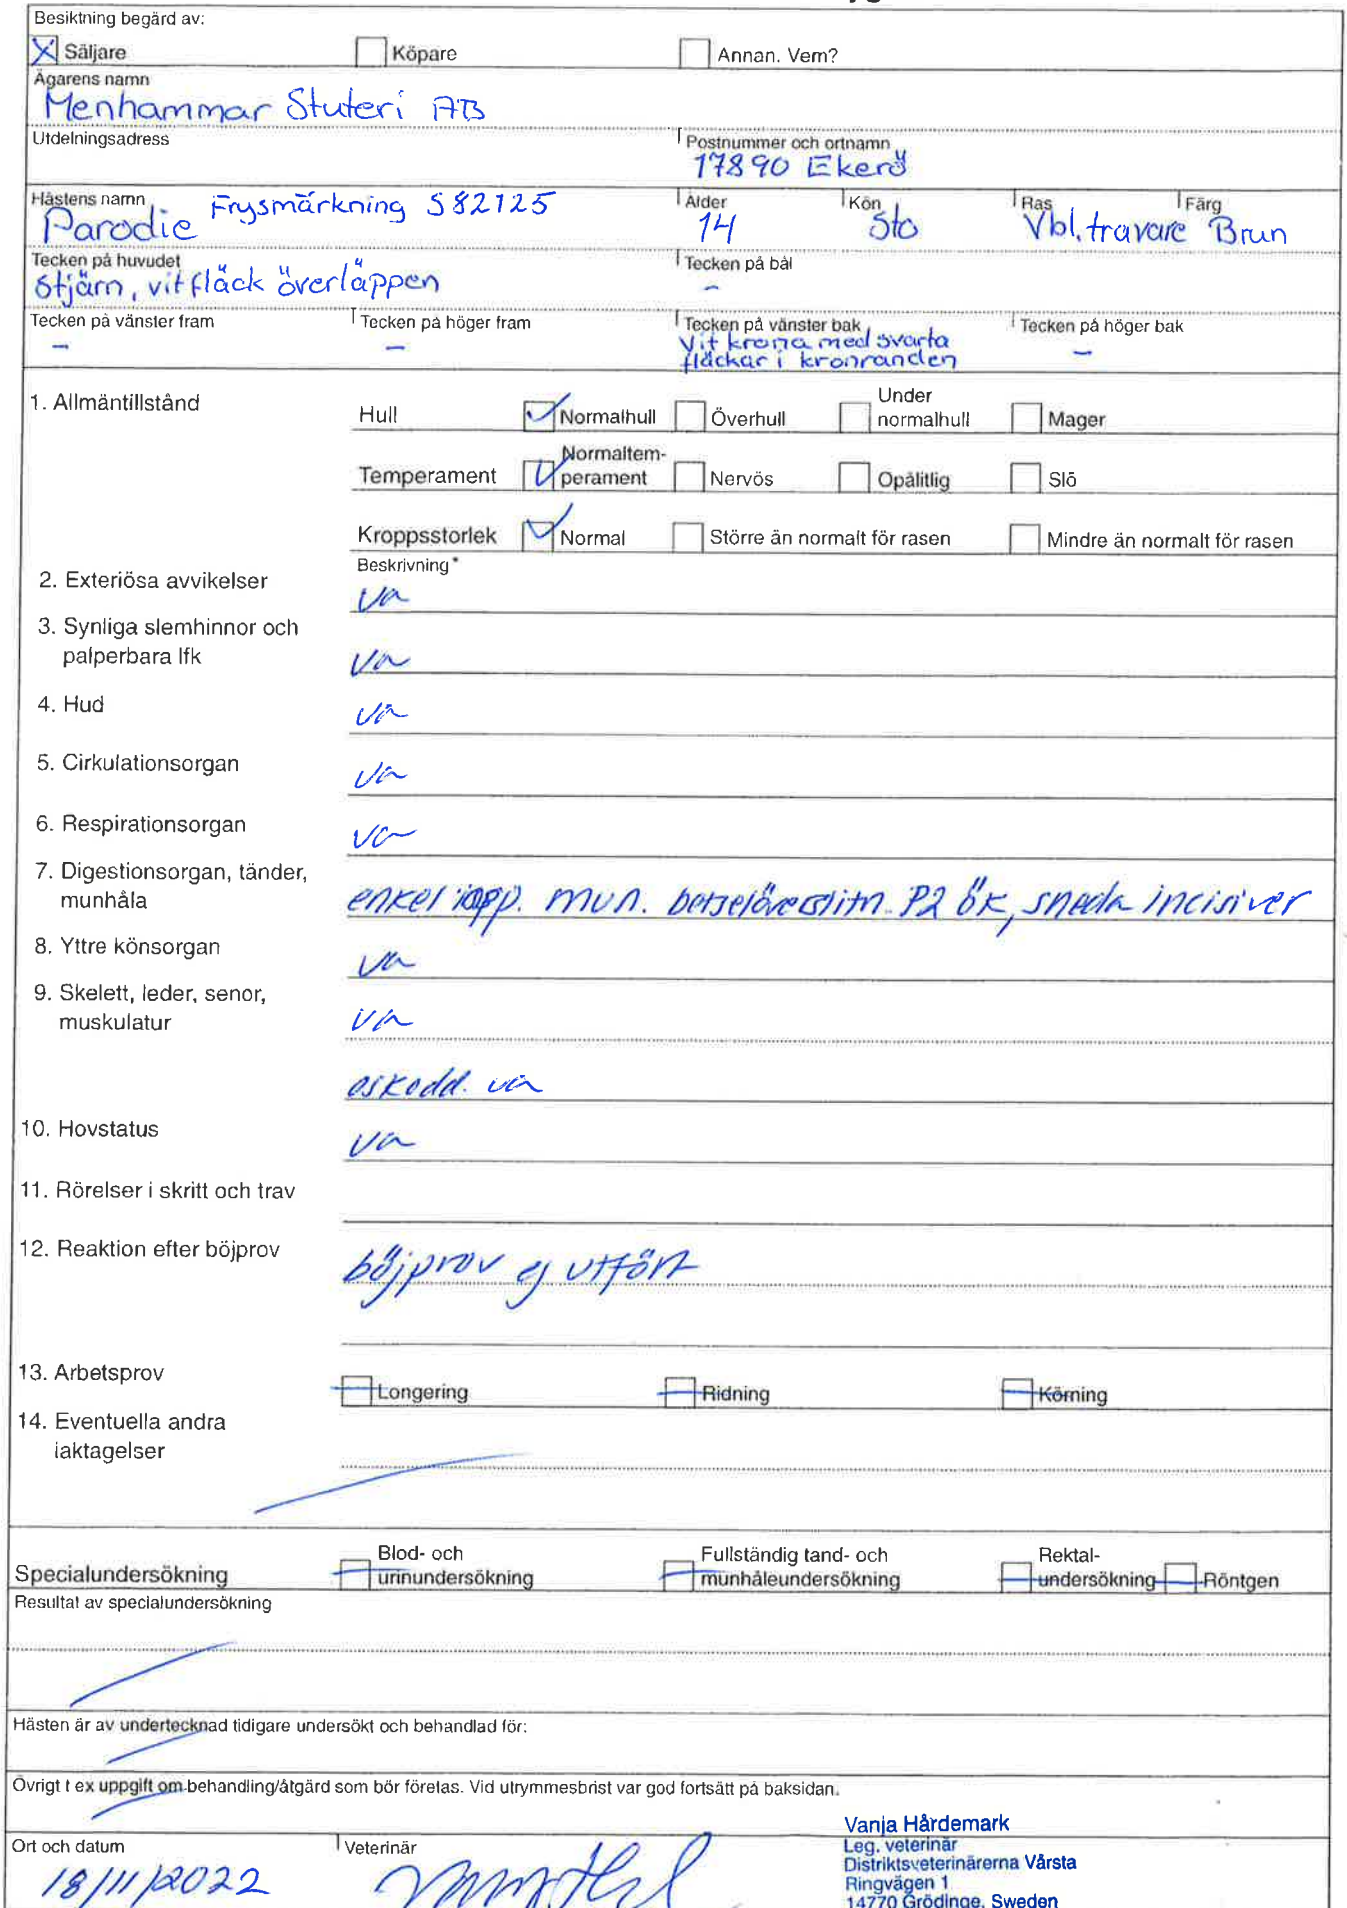 Besiktning begärd av:
Säljare Köpare Annan. Vem?
Ägarens namn
Menhammar Stuteri AB
Utdelningsadress Postnummer och ortnamn
17890 Ekerö
Hästens namn Ålder Kön Ras Färg
Parodie Frysmärkning 582125 14 Sto Vbl. travare Brun
Tecken på huvudet Tecken på bål
Stjärn, vit fläck överläppen –
Tecken på vänster fram Tecken på höger fram Tecken på vänster bak Tecken på höger bak
– – Vit krona med svarta –
fläckar i kronranden
1. Allmäntillstånd Hull Normalhull Överhull Under normalhull Mager
Temperament Normaltem-
perament Nervös Opålitlig Slö
Kroppsstorlek Normal Större än normalt för rasen Mindre än normalt för rasen
Beskrivning*
2. Exteriösa avvikelser ua
3. Synliga slemhinnor och
palperbara lfk ua
4. Hud ua
5. Cirkulationsorgan ua
6. Respirationsorgan ua
7. Digestionsorgan, tänder,
munhåla enkel insp. mun. betselöverslitn. P2 ök, sneda incisiver
8. Yttre könsorgan ua
9. Skelett, leder, senor,
muskulatur ua
oskodd. ua
10. Hovstatus ua
11. Rörelser i skritt och trav
12. Reaktion efter böjprov böjprov ej utfört
13. Arbetsprov Longering Ridning Körning
14. Eventuella andra
iaktagelser
Specialundersökning Blod- och
urinundersökning Fullständig tand- och
munhåleundersökning Rektal-
undersökning Röntgen
Resultat av specialundersökning
Hästen är av undertecknad tidigare undersökt och behandlad för:
Övrigt t ex uppgift om behandling/åtgärd som bör företas. Vid utrymmesbrist var god fortsätt på baksidan.
Ort och datum Veterinär
18/11/2022
Vanja Hårdemark
Leg. veterinär
Distriktsveterinärerna Vårsta
Ringvägen 1
14770 Grödinge, Sweden